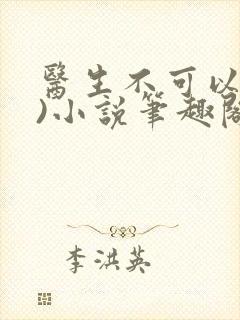 醫生不可以
)小說筆趣閣
李洪英